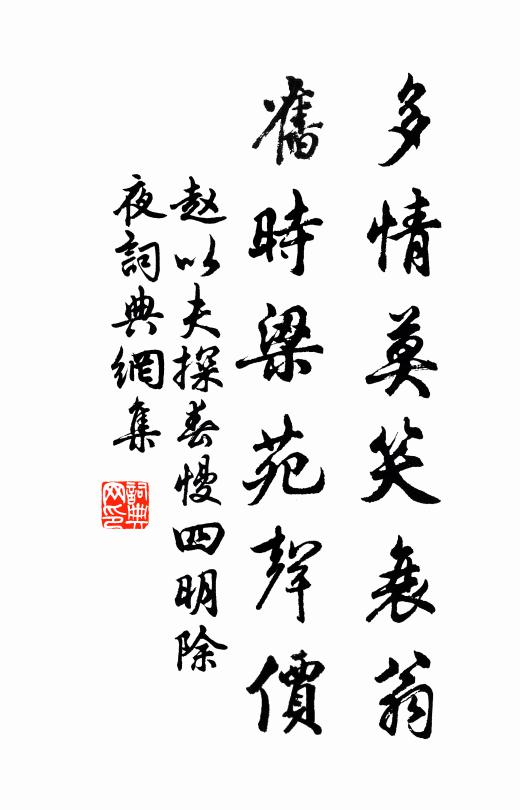 多情莫笑衰翁
舊時梁苑聲價
赵以夫探春慢四明除
夜詞典網集
詞典网印